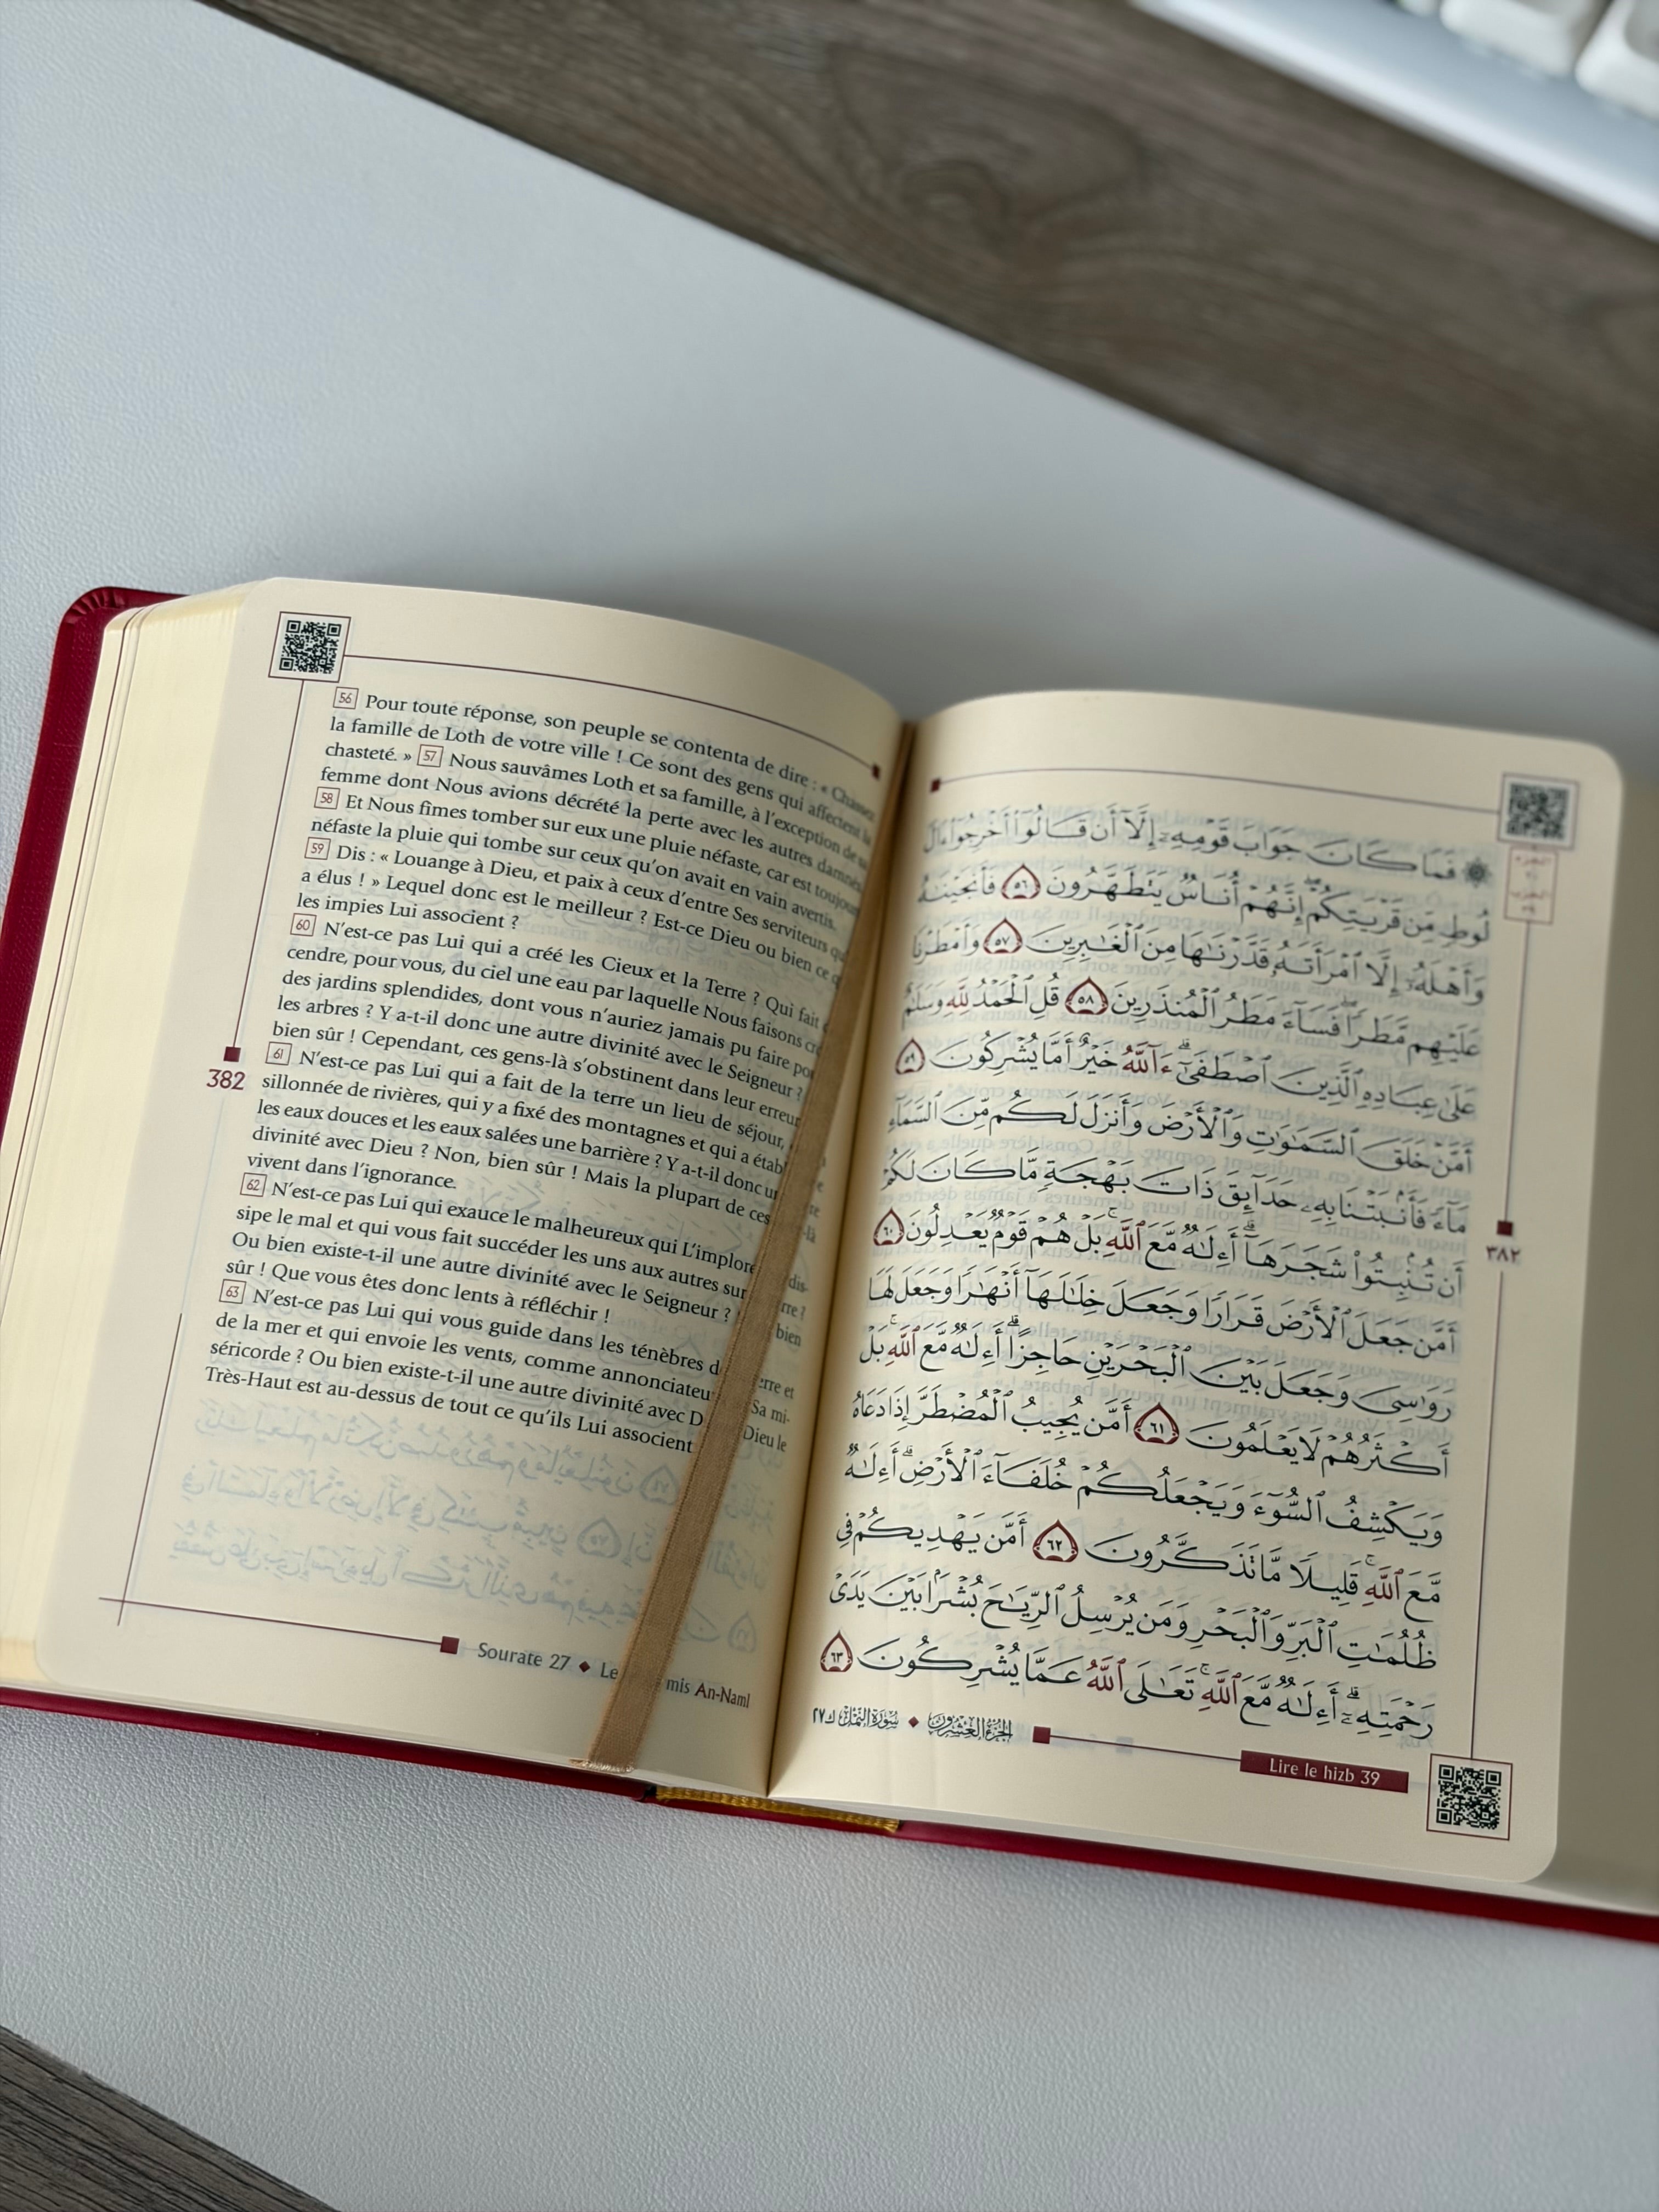 56 Pour toute réponse, son peuple se contenta de dire : « Chassez
la famille de Loth de votre ville ! Ce sont des gens qui affectent la
chasteté. » 57 Nous sauvâmes Loth et sa famille, à l'exception de sa
femme dont Nous avions décrété la perte avec les autres damnés.
58 Et Nous fîmes tomber sur eux une pluie néfaste, car est toujours
néfaste la pluie qui tombe sur ceux qu'on avait en vain avertis.
59 Dis : « Louange à Dieu, et paix à ceux d'entre Ses serviteurs
a élus ! » Lequel donc est le meilleur ? Est-ce Dieu ou bien ce
les impies Lui associent ?
60 N'est-ce pas Lui qui a créé les Cieux et la Terre ? Qui fait
cendre, pour vous, du ciel une eau par laquelle Nous faisons
des jardins splendides, dont vous n'auriez jamais pu faire
les arbres ? Y a-t-il donc une autre divinité avec le Seigneur ?
bien sûr ! Cependant, ces gens-là s'obstinent dans leur erreur
61 N'est-ce pas Lui qui a fait de la terre un lieu de séjour,
sillonnée de rivières, qui y a fixé des montagnes et qui a
les eaux douces et les eaux salées une barrière ? Y a-t-il donc
divinité avec Dieu ? Non, bien sûr ! Mais la plupart de ces
vivent dans l'ignorance.
62 N'est-ce pas Lui qui exauce le malheureux qui L'implore dis-
sipe le mal et qui vous fait succéder les uns aux autres sur
Ou bien existe-t-il une autre divinité avec le Seigneur ? bien
sûr ! Que vous êtes donc lents à réfléchir !
63 N'est-ce pas Lui qui vous guide dans les ténèbres
de la mer et qui envoie les vents, comme annonciateurs Sa mi-
séricorde ? Ou bien existe-t-il une autre divinité avec Dieu le
Très-Haut est au-dessus de tout ce qu'ils Lui associent
382
Sourate 27 ◆ An-Naml
۞ فَمَا كَانَ جَوَابَ قَوْمِهِۦٓ إِلَّآ أَن قَالُوٓا۟ أَخْرِجُوٓا۟ ءَالَ
لُوطٍ مِّن قَرْيَتِكُمْ ۖ إِنَّهُمْ أُنَاسٌ يَتَطَهَّرُونَ ٥٦ فَأَنجَيْنَٰهُ
وَأَهْلَهُۥٓ إِلَّا ٱمْرَأَتَهُۥ قَدَّرْنَٰهَا مِنَ ٱلْغَٰبِرِينَ ٥٧ وَأَمْطَرْنَا
عَلَيْهِم مَّطَرًا ۖ فَسَآءَ مَطَرُ ٱلْمُنذَرِينَ ٥٨ قُلِ ٱلْحَمْدُ لِلَّهِ وَسَلَٰمٌ
عَلَىٰ عِبَادِهِ ٱلَّذِينَ ٱصْطَفَىٰٓ ۗ ءَآللَّهُ خَيْرٌ أَمَّا يُشْرِكُونَ ٥٩
أَمَّنْ خَلَقَ ٱلسَّمَٰوَٰتِ وَٱلْأَرْضَ وَأَنزَلَ لَكُم مِّنَ ٱلسَّمَآءِ
مَآءً فَأَنۢبَتْنَا بِهِۦ حَدَآئِقَ ذَاتَ بَهْجَةٍ مَّا كَانَ لَكُمْ
أَن تُنۢبِتُوا۟ شَجَرَهَآ ۗ أَءِلَٰهٌ مَّعَ ٱللَّهِ ۚ بَلْ هُمْ قَوْمٌ يَعْدِلُونَ ٦٠
أَمَّن جَعَلَ ٱلْأَرْضَ قَرَارًا وَجَعَلَ خِلَٰلَهَآ أَنْهَٰرًا وَجَعَلَ لَهَا
رَوَٰسِىَ وَجَعَلَ بَيْنَ ٱلْبَحْرَيْنِ حَاجِزًا ۗ أَءِلَٰهٌ مَّعَ ٱللَّهِ ۚ بَلْ
أَكْثَرُهُمْ لَا يَعْلَمُونَ ٦١ أَمَّن يُجِيبُ ٱلْمُضْطَرَّ إِذَا دَعَاهُ
وَيَكْشِفُ ٱلسُّوٓءَ وَيَجْعَلُكُمْ خُلَفَآءَ ٱلْأَرْضِ ۗ أَءِلَٰهٌ
مَّعَ ٱللَّهِ ۚ قَلِيلًا مَّا تَذَكَّرُونَ ٦٢ أَمَّن يَهْدِيكُمْ فِى
ظُلُمَٰتِ ٱلْبَرِّ وَٱلْبَحْرِ وَمَن يُرْسِلُ ٱلرِّيَٰحَ بُشْرًۢا بَيْنَ يَدَىْ
رَحْمَتِهِۦٓ ۗ أَءِلَٰهٌ مَّعَ ٱللَّهِ ۚ تَعَٰلَى ٱللَّهُ عَمَّا يُشْرِكُونَ ٦٣
٣٨٢
الجزء العشرون ◆ سورة النمل ٢٧
Lire le hizb 39